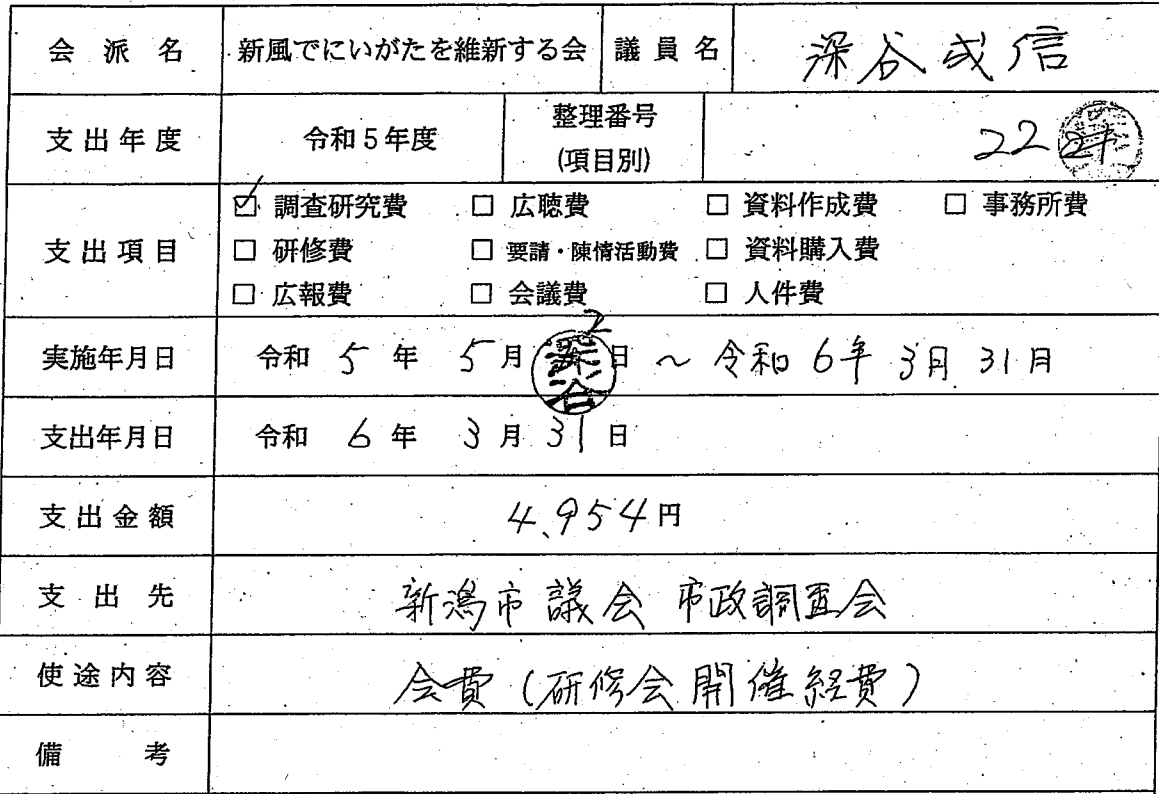 会派名 新風でにいがたを維新する会 議員名 深谷成信
支出年度 令和5年度 整理番号(項目別) 22
支出項目 ☑ 調査研究費 □ 広聴費 □ 資料作成費 □ 事務所費
□ 研修費 □ 要請・陳情活動費 □ 資料購入費
□ 広報費 □ 会議費 □ 人件費
実施年月日 令和 5 年 5 月 2 深谷 日 ~ 令和 6年 3月 31日
支出年月日 令和 6 年 3 月 31 日
支出金額 4,954円
支出先 新潟市議会 市政調査会
使途内容 会費 (研修会開催経費)
備考